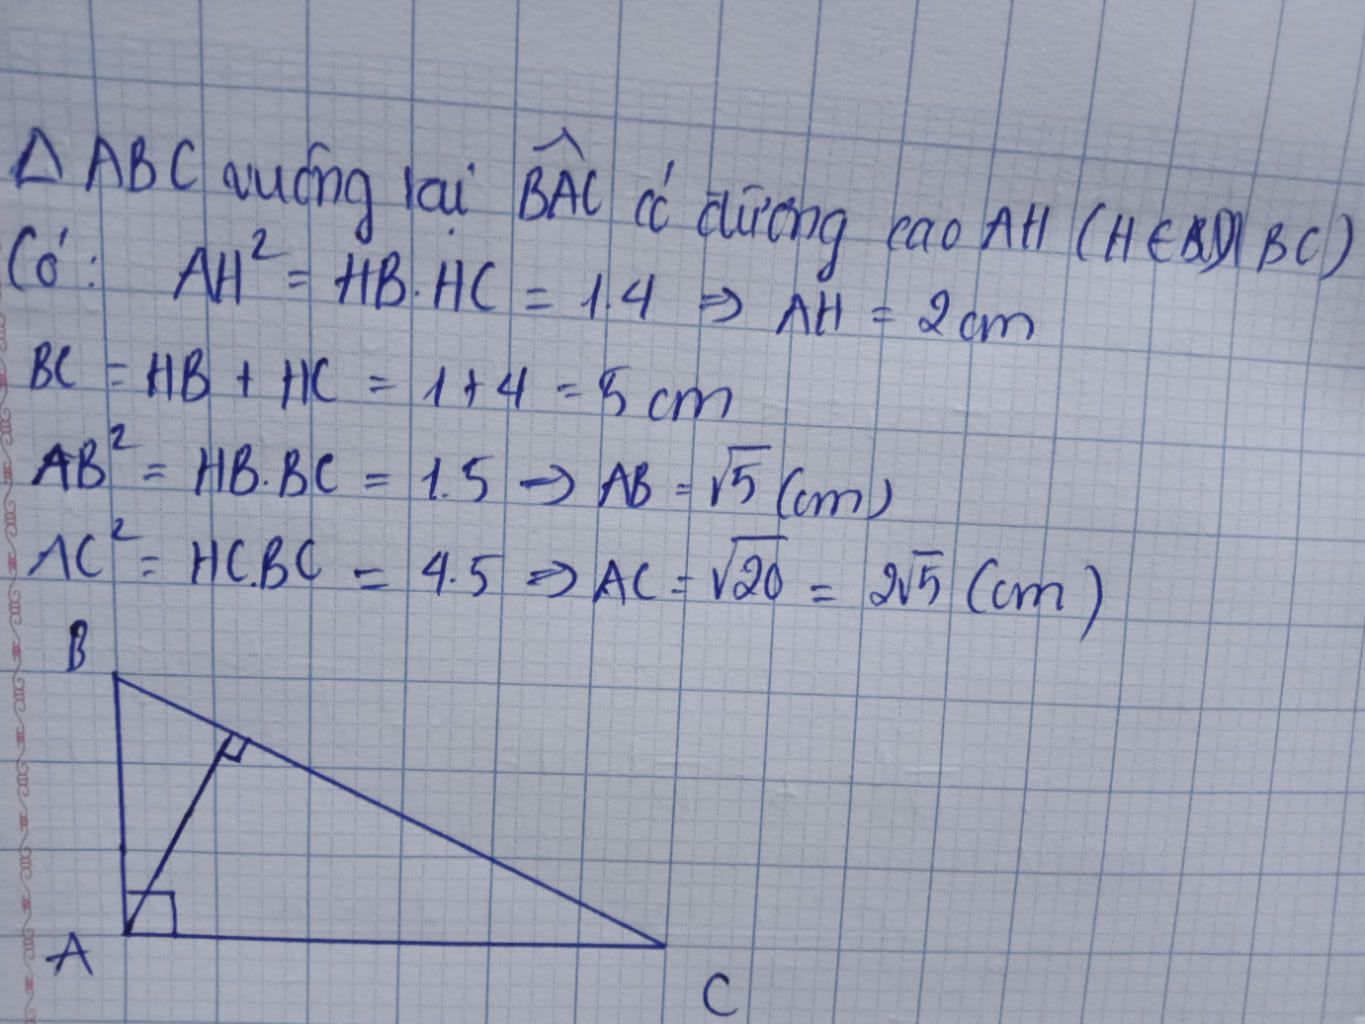 Δ ABC vuông tại BAC có đường cao AH (H ∈ BC)
Có: AH² = HB.HC = 1.4 => AH = 2 cm
BC = HB + HC = 1+4 = 5 cm
AB² = HB.BC = 1.5 => AB = √5 (cm)
AC² = HC.BC = 4.5 => AC = √20 = 2√5 (cm)
B
A
C